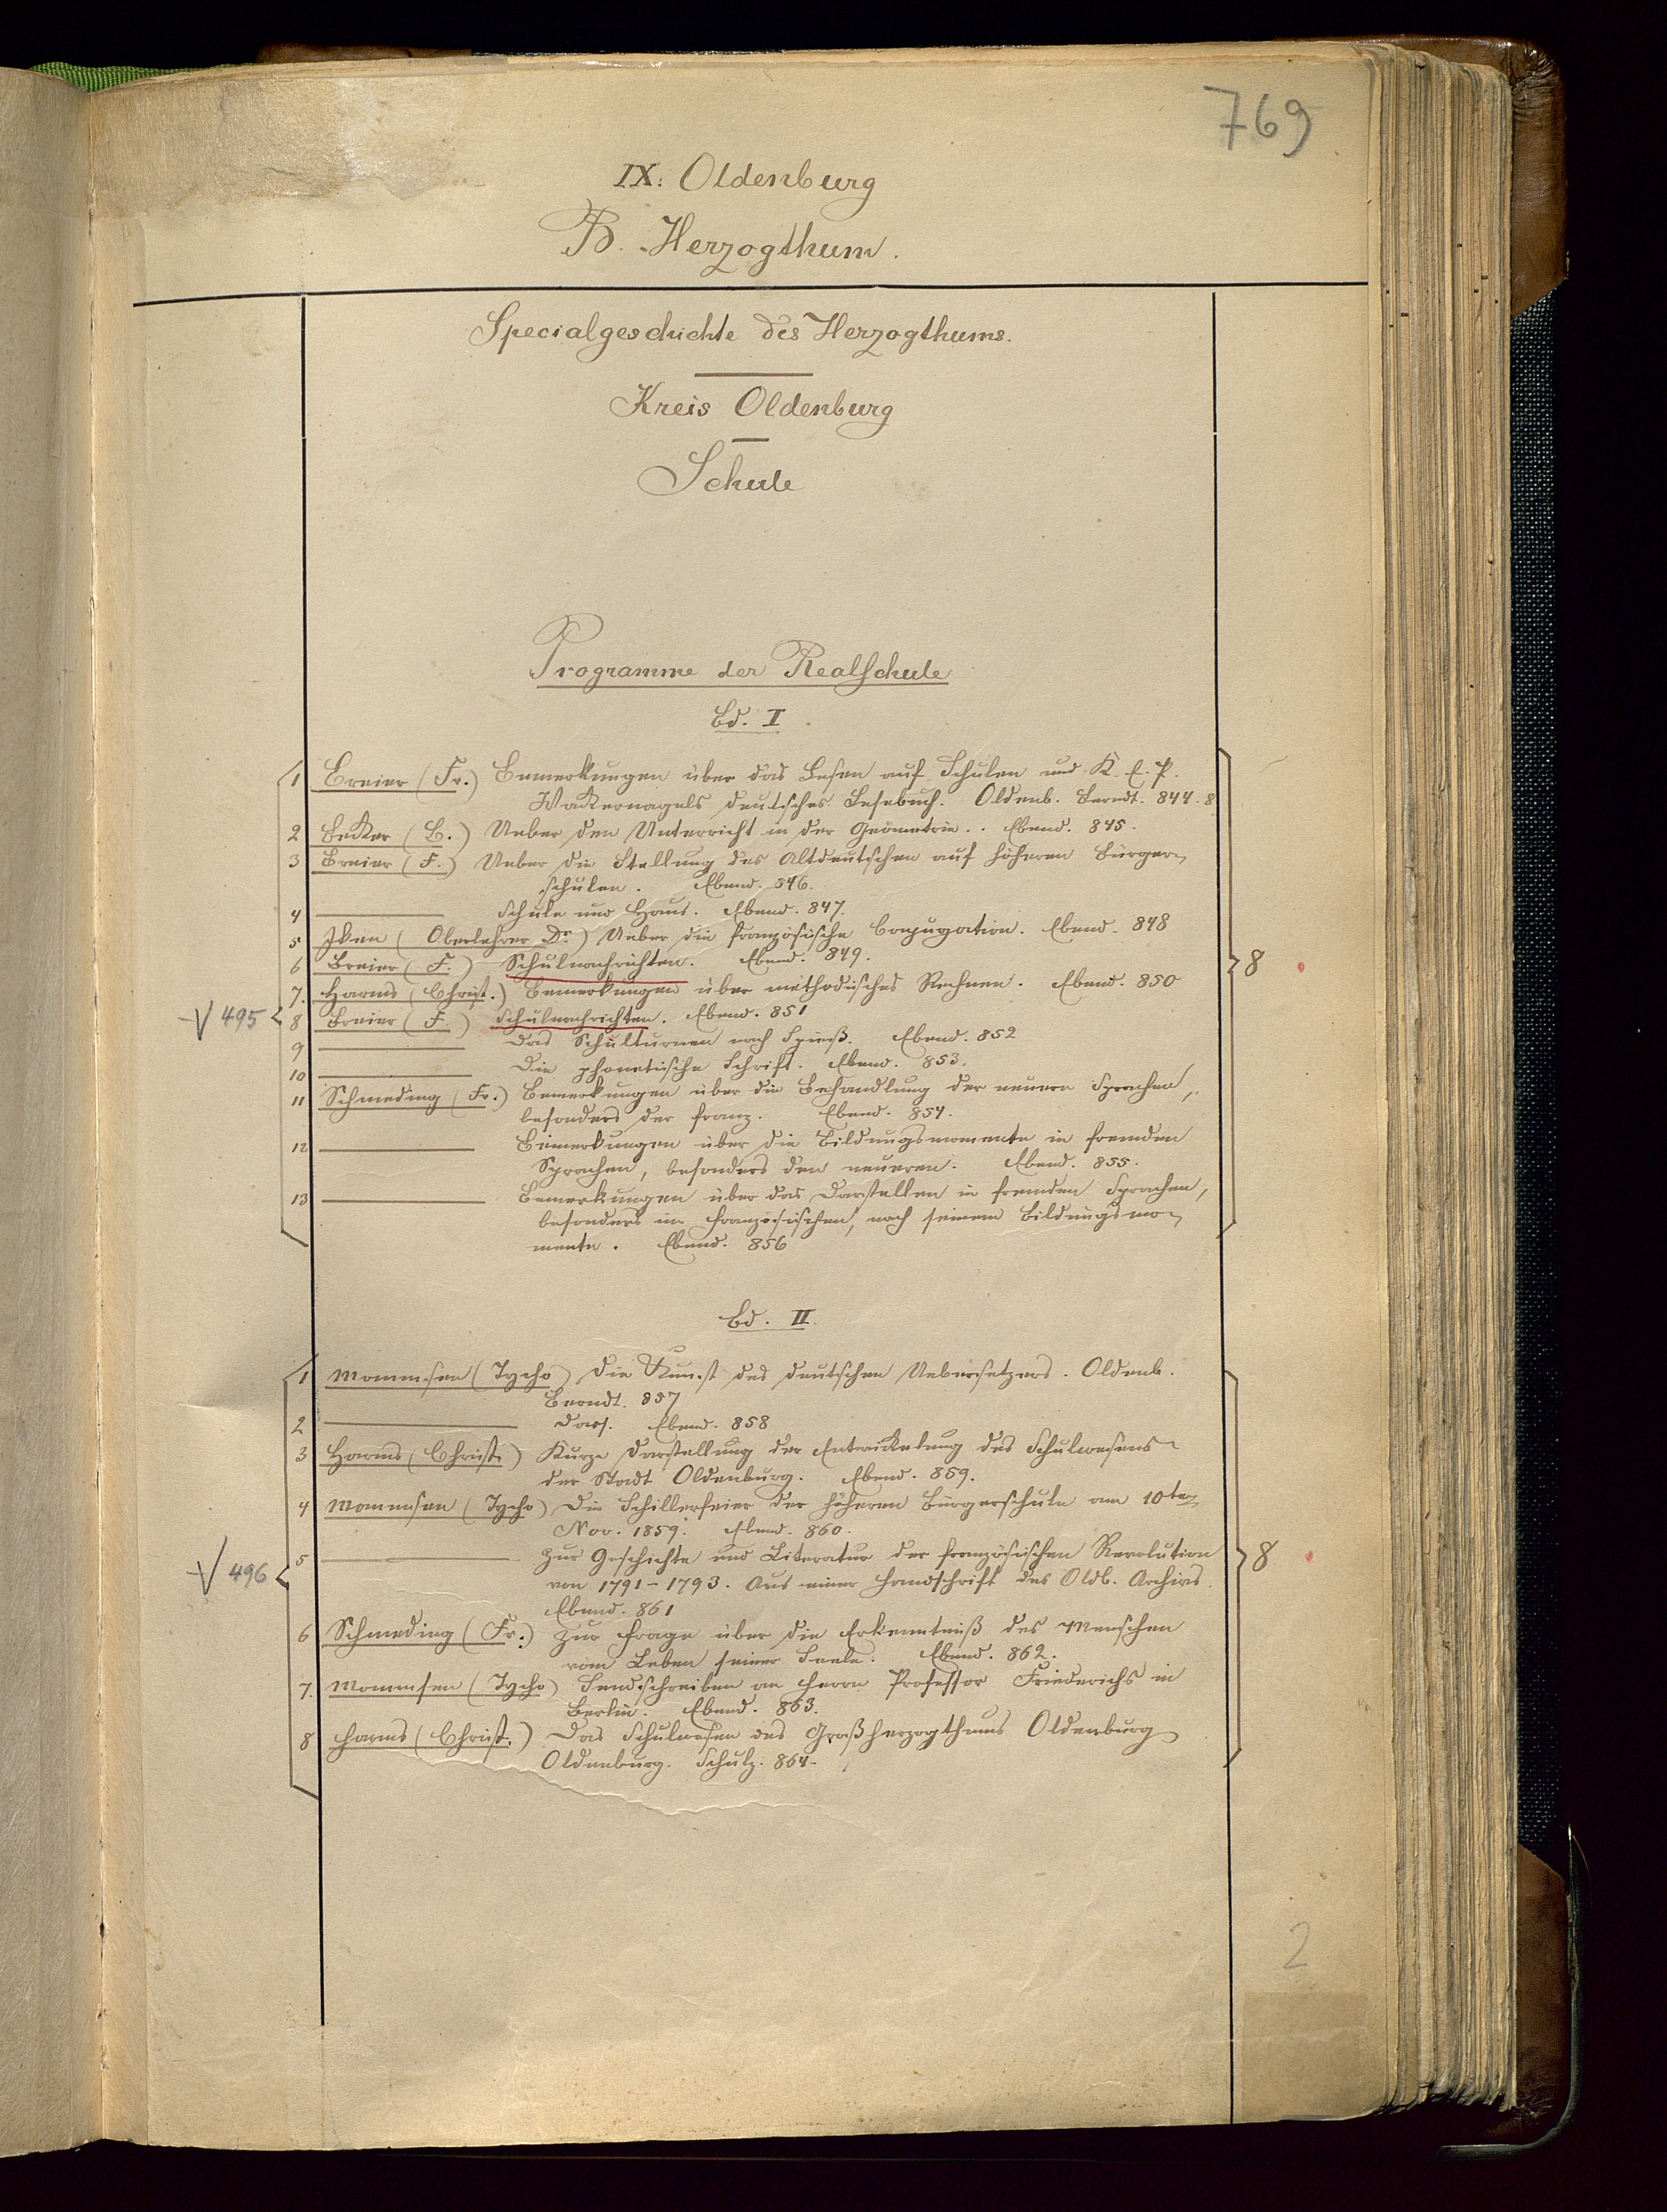 769
IX. Oldenburg
B. Herzogthum.
Specialgeschichte des Herzogthums.
Kreis Oldenburg
Schule
Programme der Realschule
Bd. I
1 Breier (Fr.) Bemerkungen über das Lesen auf Schulen und K. E. P.
Wackernagels deutsches Lesebuch. Oldenb. Berndt. 844. 8
2 Becker (B.) Ueber den Unterricht in der Geometrie. . Ebend. 845.
3 Breier (F.) Ueber die Stellung des Altdeutschen auf höheren Bürger-
schulen. Ebend. 846.
4 Schule und Haus. Ebend. 847.
5 Iken (Oberlehrer Dr.) Ueber die französische Conjugation. Ebend. 848
6 Breier (F.) Schulnachrichten. Ebend. 849.
7. Harms (Christ.) Bemerkungen über methodisches Rechnen. Ebend. 850
8
V 495
8 Breier (F.) Schulnachrichten. Ebend. 851
9 Das Schulturnen nach Spieß. Ebend. 852
10 Die phonetische Schrift. Ebend. 853.
11 Schmeding (Fr.) Bemerkungen über die Behandlung der neuern Sprachen,
besonders der franz. Ebend. 854.
12 Bemerkungen über die Bildungsmomente in fremden
Sprachen, besonders den neueren. Ebend. 855.
13 Bemerkungen über das Darstellen in fremden Sprachen,
besonders im französischen, nach seinem Bildungsmo-
mente. Ebend. 856
Bd. II.
1 Mommsen (Tycho) Die Kunst des deutschen Uebersetzers. Oldenb.
Berndt. 857
2 Dass. Ebend. 858
3 Harms (Christ.) Kurze Darstellung der Entwickelung des Schulwesens
der Stadt Oldenburg. Ebend. 859.
4 Mommsen (Tycho) Die Schillerfeier der höheren Bürgerschule am 10ten
Nov. 1859. Ebend. 860.
5 Zur Geschichte und Literatur der französischen Revolution
8
V 496
von 1791-1793. Aus einer Handschrift des Oldb. Archivs.
Ebend. 861
6 Schmeding (Fr.) Zur Frage über die Erkenntniß des Menschen
vom Leben seiner Seele. Ebend. 862.
7. Mommsen (Tycho) Sendschreiben an Herrn Professor Friederichs in
Berlin. Ebend. 863.
8 Harms (Christ.) Das Schulwesen des Großherzogthums Oldenburg
Oldenburg. Schulz. 864.
2